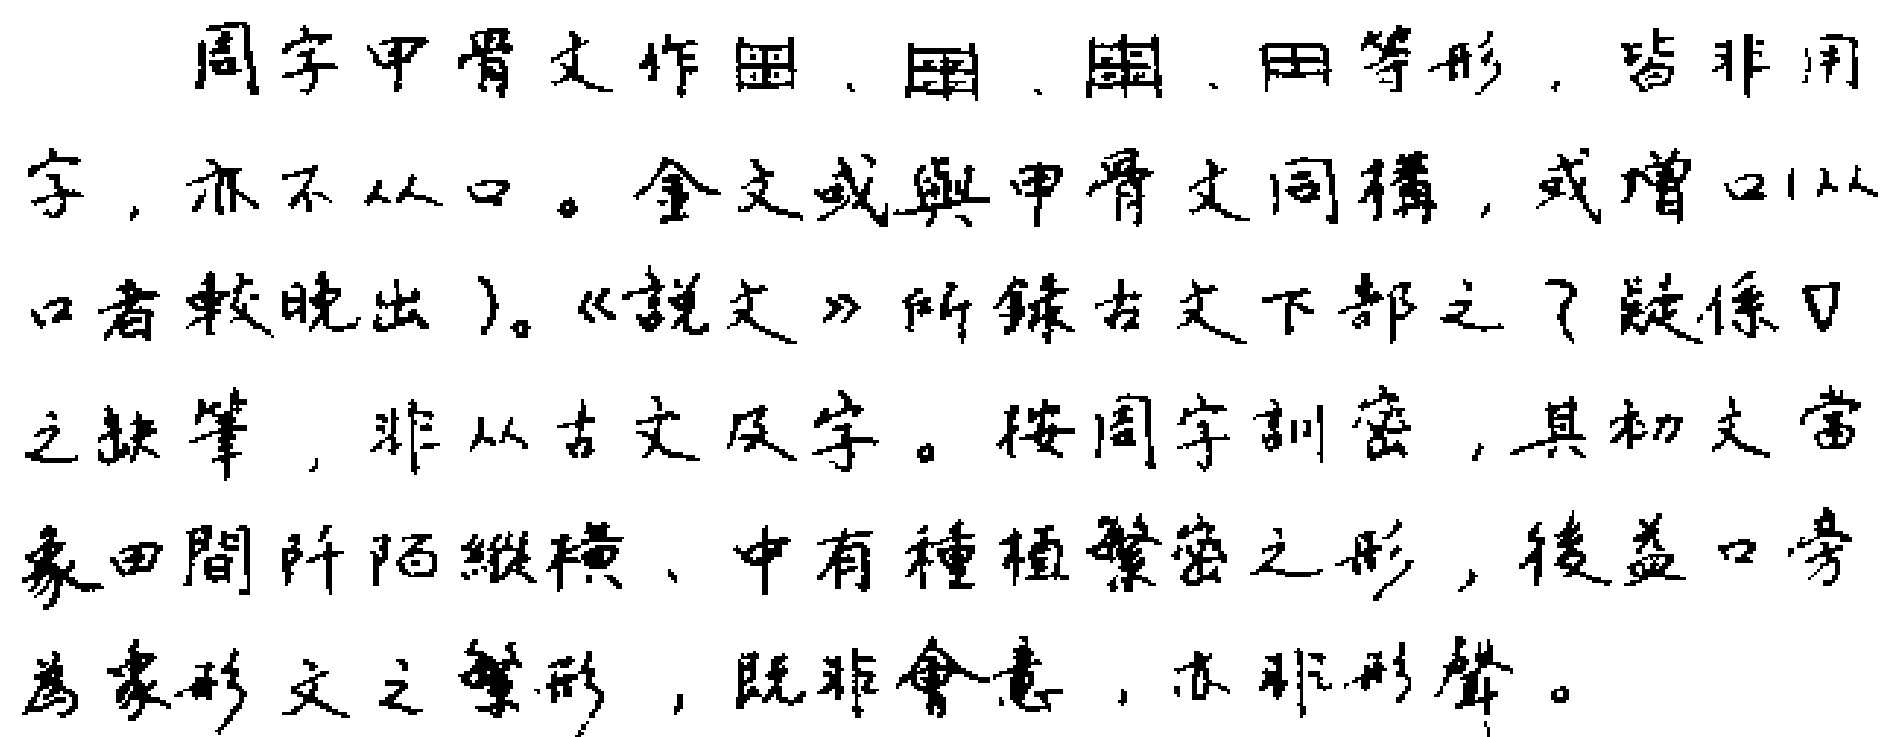 周字甲骨文作、、、等形，皆非用
字，亦不从口。金文或與甲骨文同構，或增口(从
口者較晚出)。《説文》所錄古文下部之疑係
之缺筆，非从古文及字。按周字訓密，其初文當
象田間阡陌縱橫、中有種植繁密之形，後益口旁
為象形文之繁形，既非會意，亦非形聲。